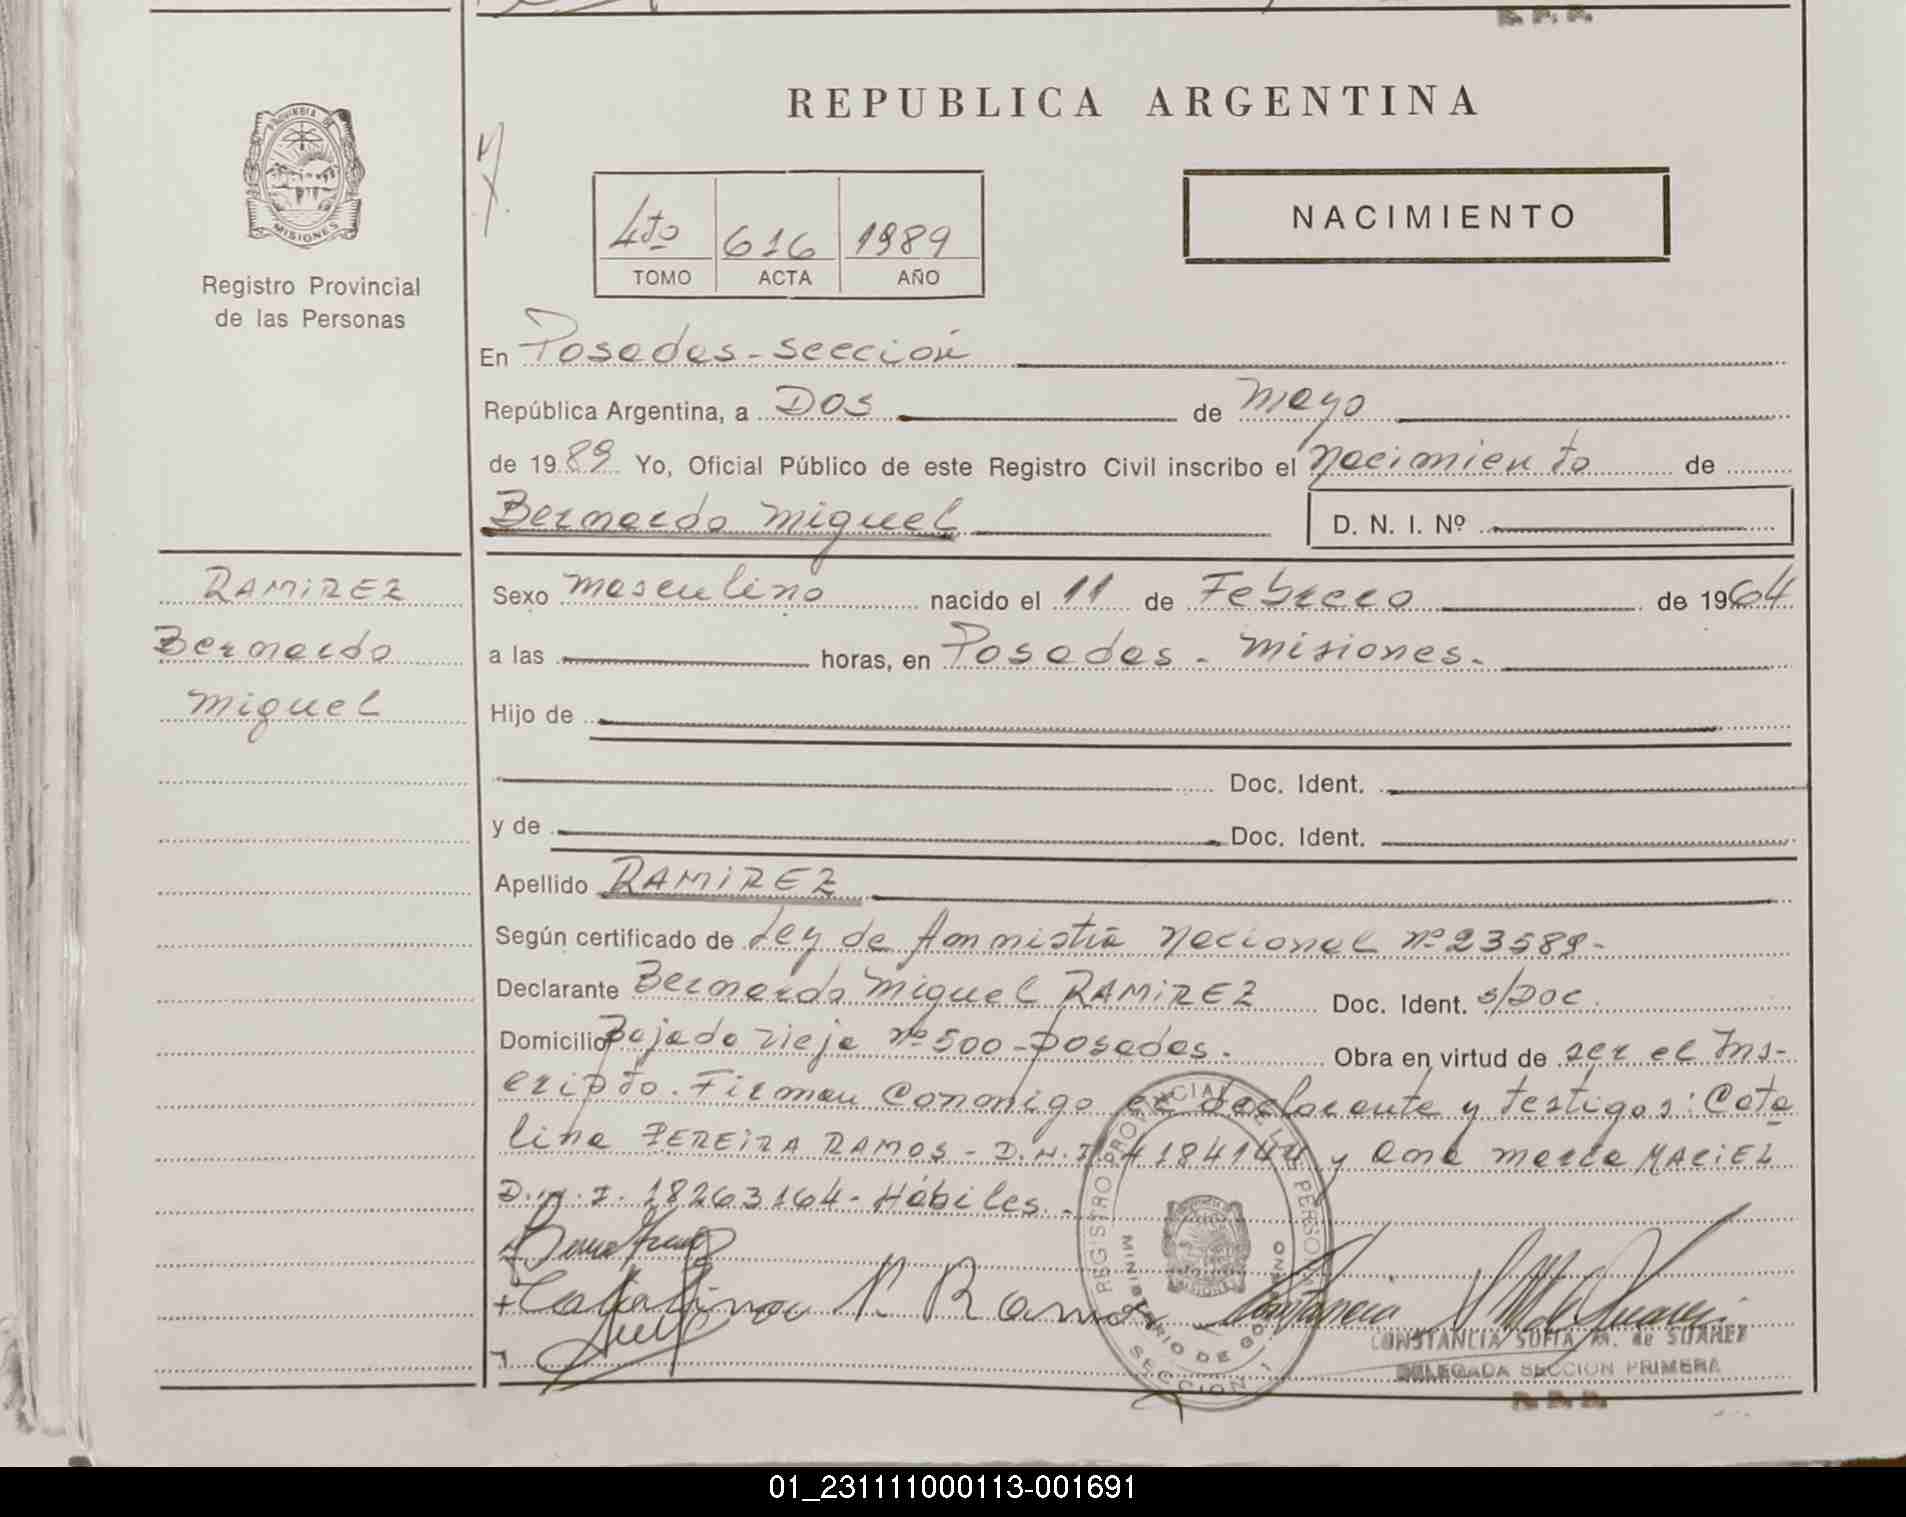 REPUBLICA ARGENTINA
PROVINCIA DE
MISIONES
Registro Provincial
de las Personas
4to 616 1989
TOMO ACTA AÑO
NACIMIENTO
En Posadas - sección
República Argentina, a Dos de Mayo
de 1989 Yo, Oficial Público de este Registro Civil inscribo el Nacimiento de
Bernardo Miguel
D. N. I. Nº
RAMIREZ
Bernardo
Miguel
Sexo masculino nacido el 11 de Febrero de 1964
a las horas, en Posadas - Misiones.
Hijo de
Doc. Ident.
y de Doc. Ident.
Apellido RAMIREZ
Según certificado de Ley de Amnistía Nacional nº 23589-
Declarante Bernardo Miguel RAMIREZ Doc. Ident. s/Doc.
Domicilio Bajada vieja nº 500 - Posadas. Obra en virtud de ser el Ins-
cripto. Firman Conmigo el declarante y testigos: Cata
lina PEREIRA RAMOS - D.N.I. 4184144 y Ana María MACIEL
D.N.I. 18263164 - Hábiles. -
Catalina P. Ramos
REGISTRO PROVINCIAL DE LAS PERSONAS
MINISTERIO DE GOBIERNO
SECCION 1
CONSTANCIA SOFIA M. de SUAREZ
DELEGADA SECCION PRIMERA
R. P. P.
01_231111000113-001691